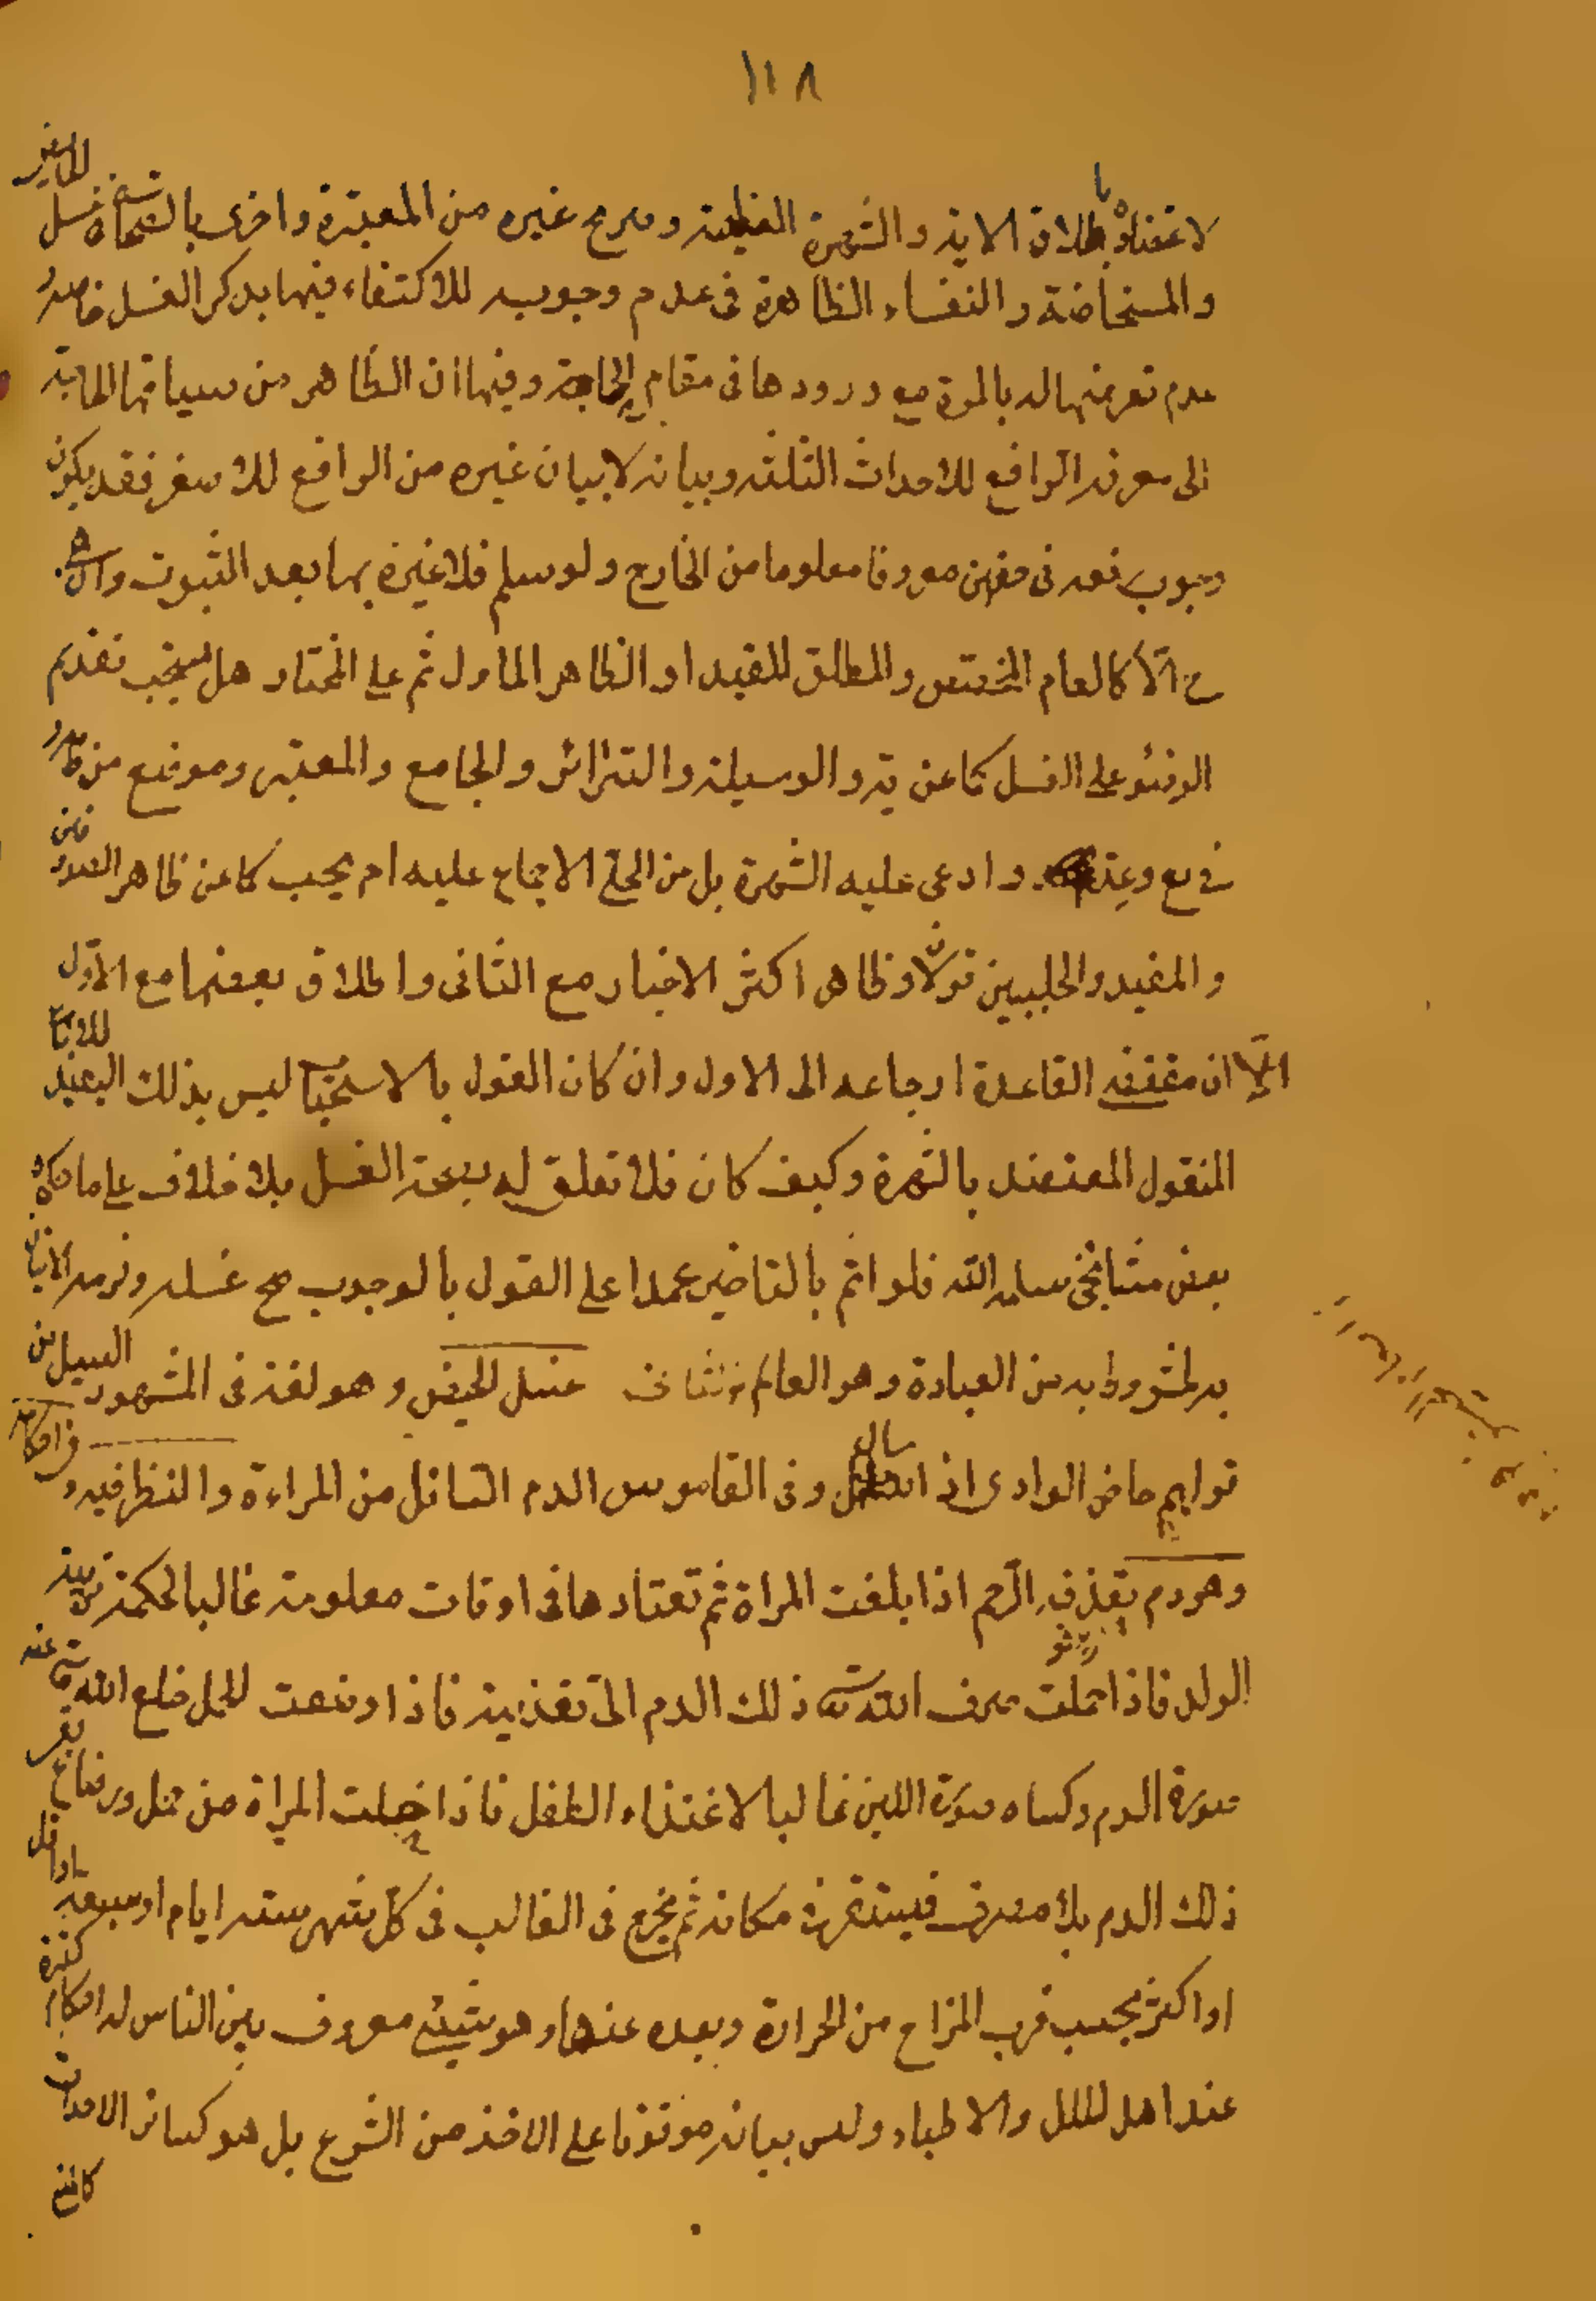 ١١٨
لاعتضاده باطلاق الاية والشهرة العظيمة وصريح غيره من المعتبرة واخرى بالنسبة غسل الحايض
والمستحاضة والنفساء الظاهرة فى عدم وجوبه للاكتفاء فيها بذكر الغسل
عدم تعرضها له بالمرة مع ورودها فى مقام الحاجة وفيها ان الظاهر من سياقها الحاجة
الى معرفة الرافع للاحداث الثلثة وبيانه لا بيان غيره من الرافع للاصغر فقد يكون
وجوب رفعه فى حقهن معروفا معلوما من الخارج ولو سلم فلا عبرة بها بعد الثبوت
ح الا كالعام المخصص والمطلق المقيد او الظاهر الماول ثم على المختار هل يستحب تقديم
الوضوء على الغسل كما عن ية والوسيلة والسرائر والجامع والمعتبر وموضع من
فى يع وعد وادعى عليه الشهرة بل من الحلى الاجماع عليه ام يجب كما عن ظاهر الصدوقين
والمفيد والحلبيين قولان وظاهر اكثر الاخبار مع الثانى واطلاق بعضها مع الاول
الا ان مقتضى القاعدة ارجاعه الى الاول وان كان القول بالاستحباب ليس بذلك البعيد للاجماع
المنقول المعتضد بالشهرة وكيف كان فلا تعلق له بصحة الغسل بلا خلاف على ما حكاه
بعض مشايخى سلمه الله فلو اثم بالتاخير عمدا على القول بالوجوب صح غسله ولزمه الاتيان
به لمشروط به من العبادة وهو العالم غسل الحيض وهو لغة فى المشهور السيل من
قولهم حاض الوادى اذا سال وفى القاموس الدم السائل من المراءة والنظر فيه وفى احكامه
وهو دم يقذفه الرحم اذا بلغت المراة ثم تعتادها فى اوقات معلومة غالبا لحكمة تربية
الولد فاذا حملت صرف الله تع ذلك الدم الى تغذيته فاذا وضعت الحمل خلع الله تع عنه
صورة الدم وكساه صورة اللبن غالبا لاغتذاء الطفل فاذا خلت المراة من حمل ورضاع بقى
ذلك الدم بلا مصرف فيستقر فى مكانه ثم يخرج فى الغالب فى كل شهر ستة ايام او سبعة او اقل
او اكثر بحسب قرب المزاج من الحرارة وبعده عنها وهو شيئ معروف بين الناس له احكام كثيرة
عند اهل الملل والاطباء وليس بيانه موقوفا على الاخذ من الشرع بل هو كسائر الاحداث